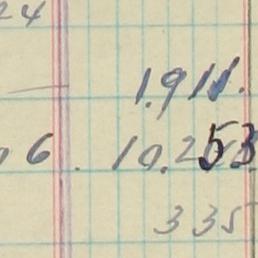 24
1.911.
6. 10.253
335